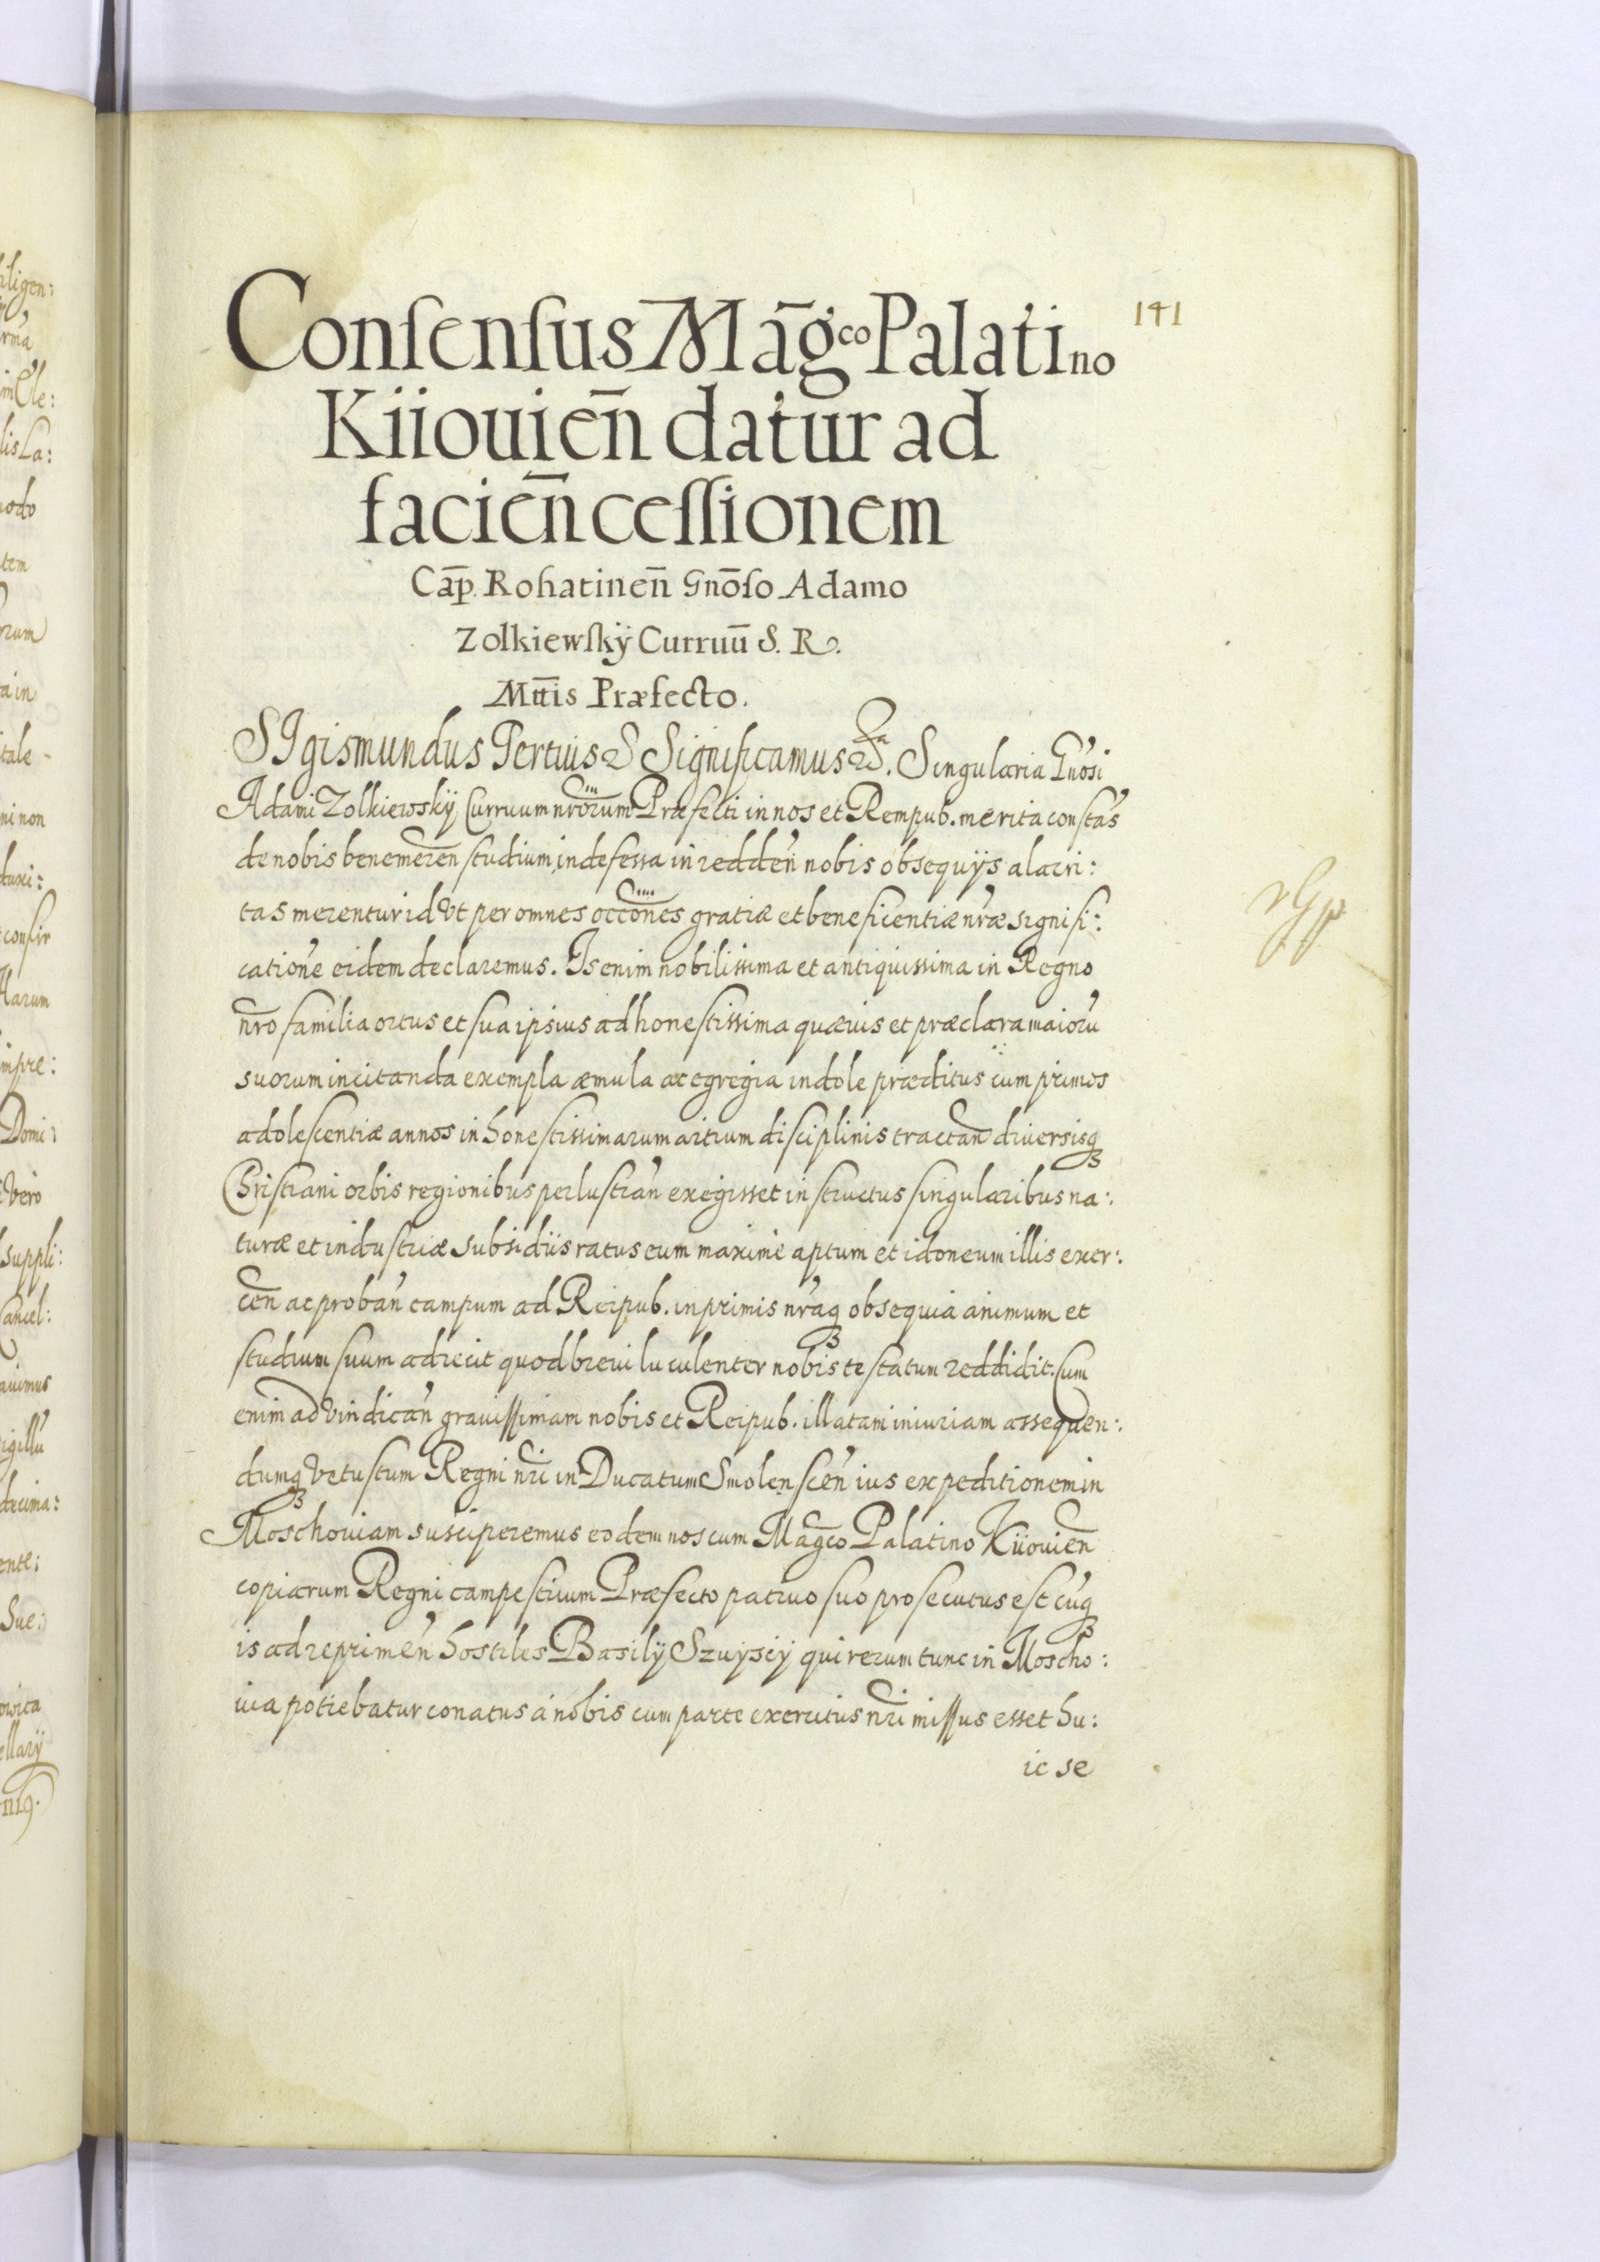 141
Consensus Mag̃co Palatino
Kiiouien̄ datur ad
facien̄ cessionem
Cap̄. Rohatinen̄ Gnōso Adamo
Zolkiewskÿ Curruū S. R.
Mttis Præfecto.
SIgismundus Tertius Significamus. Singularia Gnosi
Adami Zolkiewskij Curruum nrorum Præfecti in nos et Rempub. merita constās
de nobis benemeren̄ studium indefessa in redden̄ nobis obsequijs alacri:
tas merentur id vt per omnes occōnes gratiæ et beneficentiæ nræ signifi:
catione eidem declaremus. Is enim nobilissima et antiquissima in Regno
nro familia ortus et sua ipsius ad honestissima quæuis et præclara maiorū
suorum incitanda exempla æmula ac egregia indole præditus cum primos
adolescentiæ annos in honestissimarum artium disciplinis tractan̄ diuersisqȝ
Christiani orbis regionibus perlustran̄ exegisset instructus singularibus na:
turæ et industriæ subsidiis ratus eum maximè aptum et idoneum illis exer:
cen̄ ac proban̄ campum ad Reipub. inprimis nraqȝ obsequia animum et
studium suum adiecit quod breui luculenter nobis testatum reddidit. Cum
enim ad vindican̄ grauissimam nobis et Reipub. illatam iniuriam assequen:
dumqȝ vetustum Regni nri in Ducatum Smolenscen̄ ius expeditionem in
Moschouiam susciperemus eodem nos cum Magco Palatino Kiiouien̄
copiarum Regni campestrium Præfecto patruo suo prosecutus est cūqȝ
is ad reprimen̄ hostiles Basilij Szuyscij qui rerum tunc in Moscho:
uia potiebatur conatus à nobis cum parte exercitus nri missus esset hu:
ic se